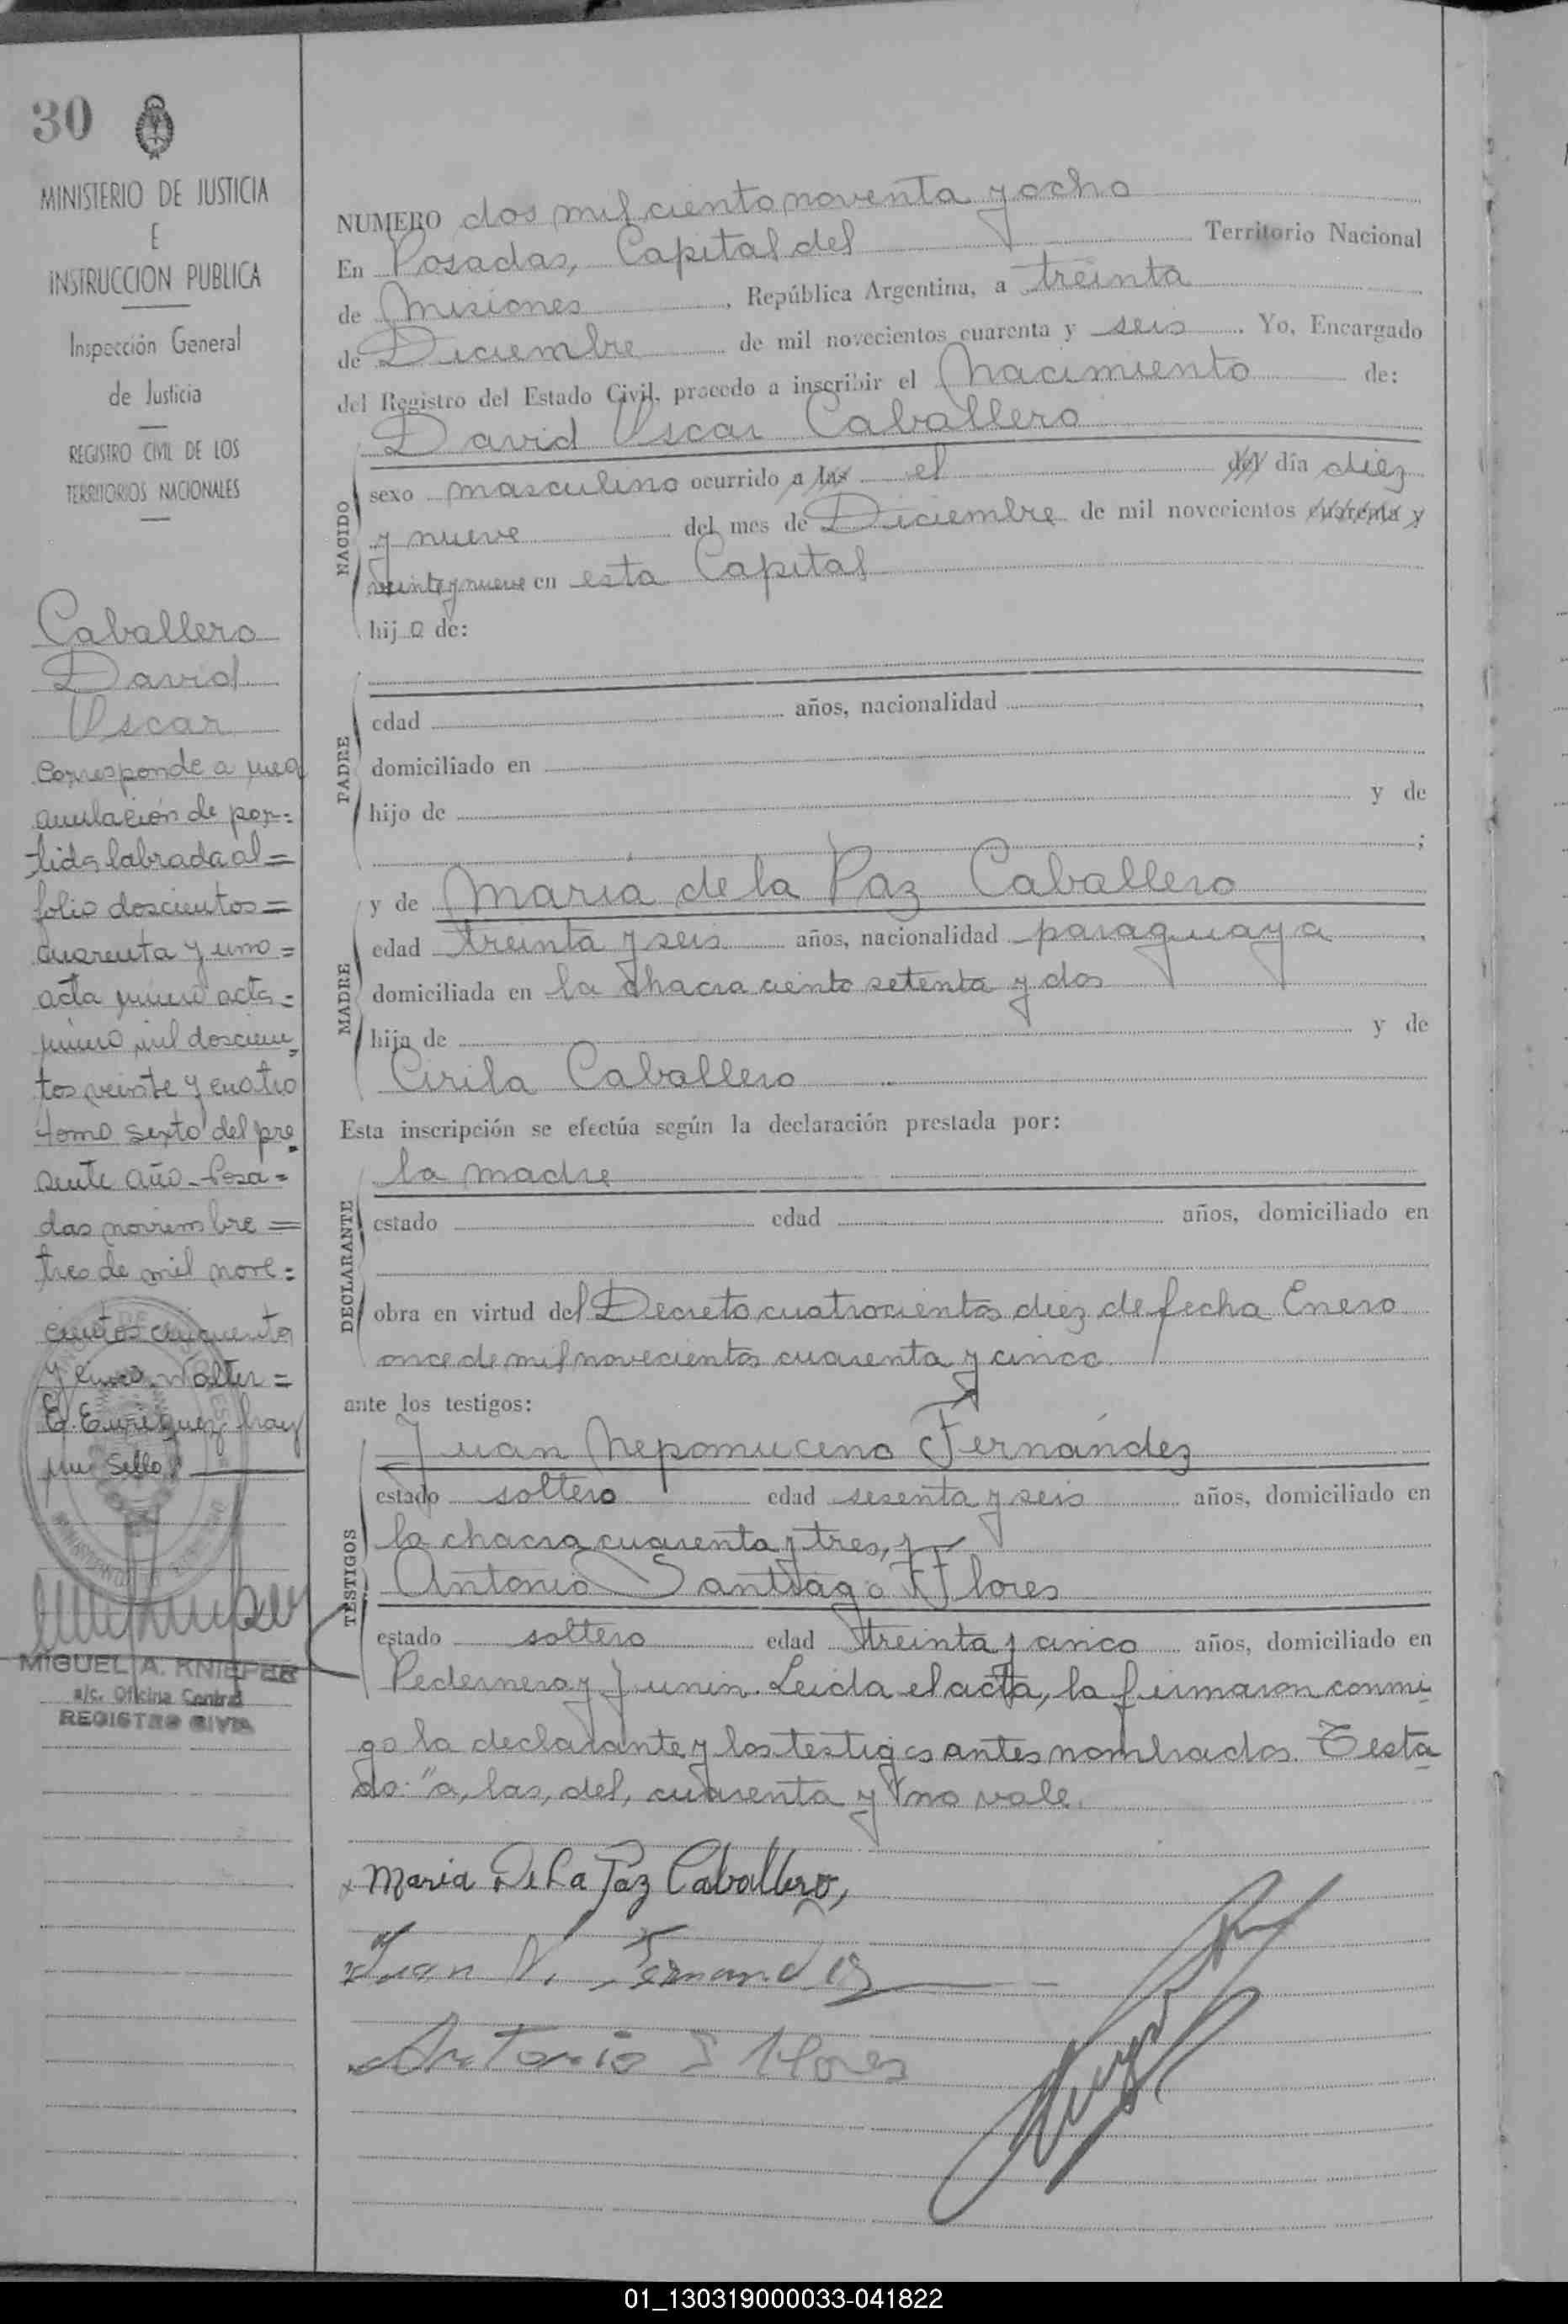 30
MINISTERIO DE JUSTICIA
E
INSTRUCCION PUBLICA
Inspección General
de Justicia
REGISTRO CIVIL DE LOS
TERRITORIOS NACIONALES
Caballero
David
Oscar
Corresponde a una
anulación de par=
tida labrada al=
folio doscientos=
cuarenta y uno=
acta número acta=
número mil doscien=
tos veinte y cuatro
tomo sexto del pre
sente año_Posa=
das noviembre=
tres de mil nove=
cientos cincuenta
y cinco. Walter=
E. Enriquez. hay
un Sello
MIGUEL A. KNIEPER
a/c. Oficina Central
REGISTRO CIVIL
NUMERO dos mil ciento noventa y ocho
En Posadas, Capital del Territorio Nacional
de Misiones, República Argentina, a treinta
de Diciembre de mil novecientos cuarenta y seis. Yo, Encargado
del Registro del Estado Civil, procedo a inscribir el Nacimiento de:
David Oscar Caballero
NACIDO
sexo masculino ocurrido a las el del día diez
y nueve del mes de Diciembre de mil novecientos cuarenta y
veinte y nueve en esta Capital
hijo de:
PADRE
edad años, nacionalidad ,
domiciliado en
hijo de y de
;
MADRE
y de Maria de la Paz Caballero
edad treinta y seis años, nacionalidad paraguaya ,
domiciliada en la chacra ciento setenta y dos
hija de y de
Cirila Caballero
Esta inscripción se efectúa según la declaración prestada por:
DECLARANTE
la madre
estado edad años, domiciliado en
obra en virtud del Decreto cuatrocientos diez de fecha Enero
once de mil novecientos cuarenta y cinco.
ante los testigos:
TESTIGOS
Juan Nepomuceno Fernández
estado soltero edad sesenta y seis años, domiciliado en
la chacra cuarenta y tres, y
Antonio Santiago Flores
estado soltero edad treinta y cinco años, domiciliado en
Pedernera y Junin. Leida el acta, la firmaron conmi-
go la declarante y los testigos antes nombrados. Testa-
do: "a, las, del, cuarenta y" no vale.
Maria De La Paz Caballero,
Juan N. Fernandez
Antonio S Flores
01_130319000033-041822